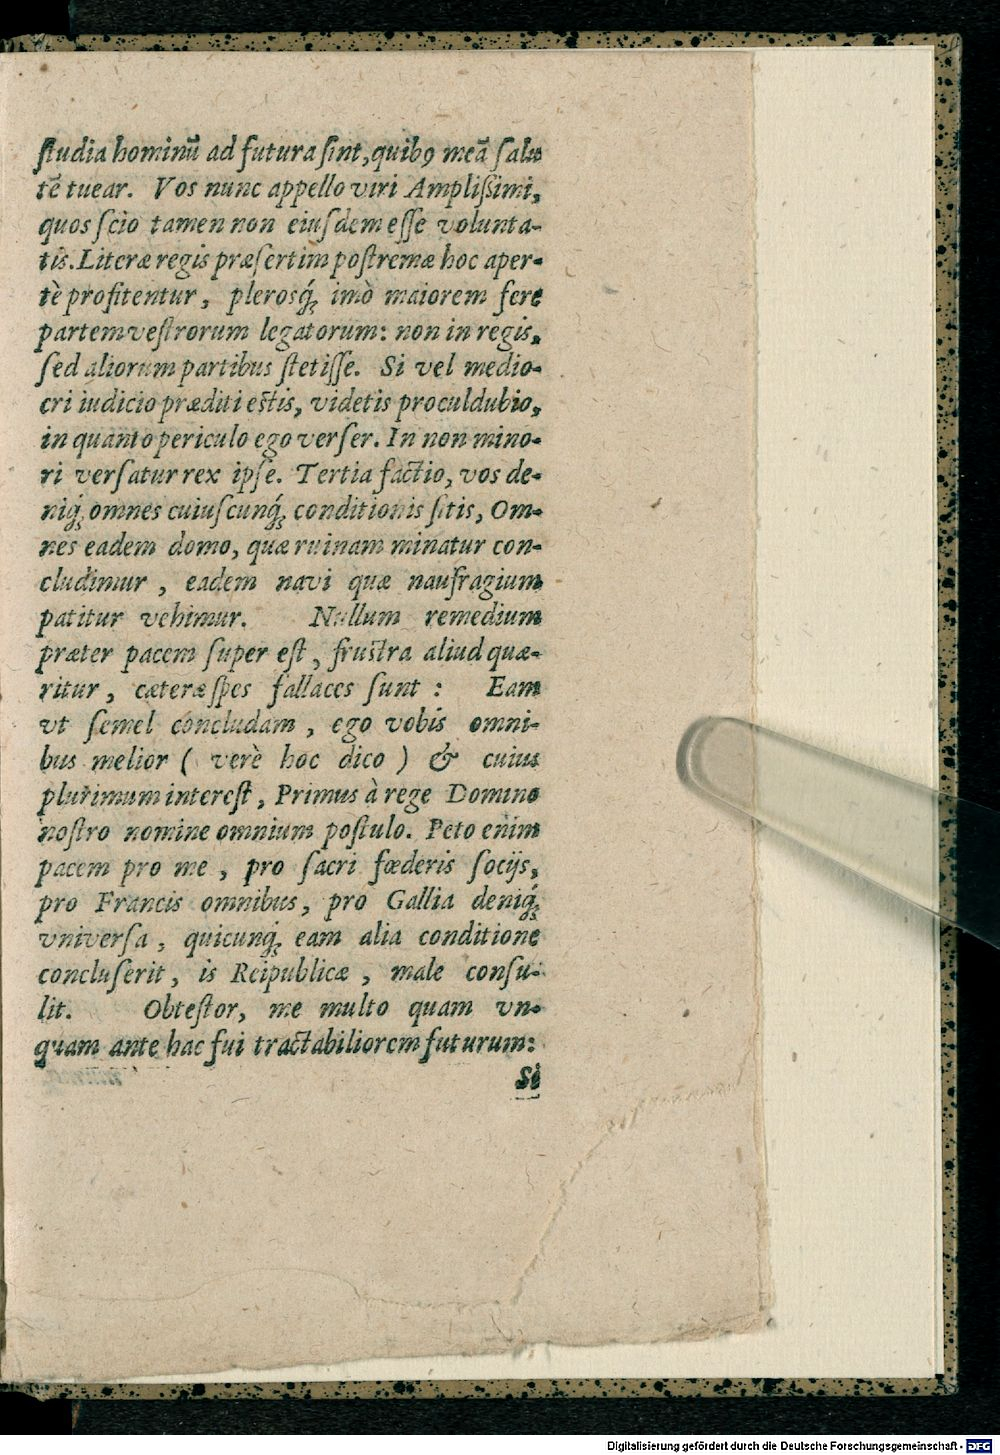 studia hominū ad futura sint, quibꝰ meā salu
tē tuear. Vos nunc appello viri Amplissimi,
quos scio tamen non eiusdem esse volunta-
tis. Literæ regis præsertim postremæ hoc aper-
tè profitentur, plerosq́; imò maiorem fere
partem vestrorum legatorum: non in regis,
sed aliorum partibus stetisse. Si vel medio-
cri iudicio præditi estis, videtis proculdubio,
in quanto periculo ego verser. In non mino-
ri versatur rex ipse. Tertia factio, vos de-
niq́; omnes cuiuscunq́; conditionis sitis, Om-
nes eadem domo, quæ ruinam minatur con-
cludimur, eadem navi quæ naufragium
patitur vehimur. Nullum remedium
præter pacem super est, frustra aliud quæ-
ritur, cæteræ spes fallaces sunt: Eam
vt semel concludam, ego vobis omni-
bus melior ( verè hoc dico ) & cuius
plurimum interest, Primus à rege Domino
nostro nomine omnium postulo. Peto enim
pacem pro me, pro sacri fœderis socijs,
pro Francis omnibus, pro Gallia deniq́;
vniversa, quicunq́; eam alia conditione
concluserit, is Reipublicæ, male consu-
lit. Obtestor, me multo quam vn-
quam ante hac fui tractabiliorem futurum:
Si
Digitalisierung gefördert durch die Deutsche Forschungsgemeinschaft - DFG